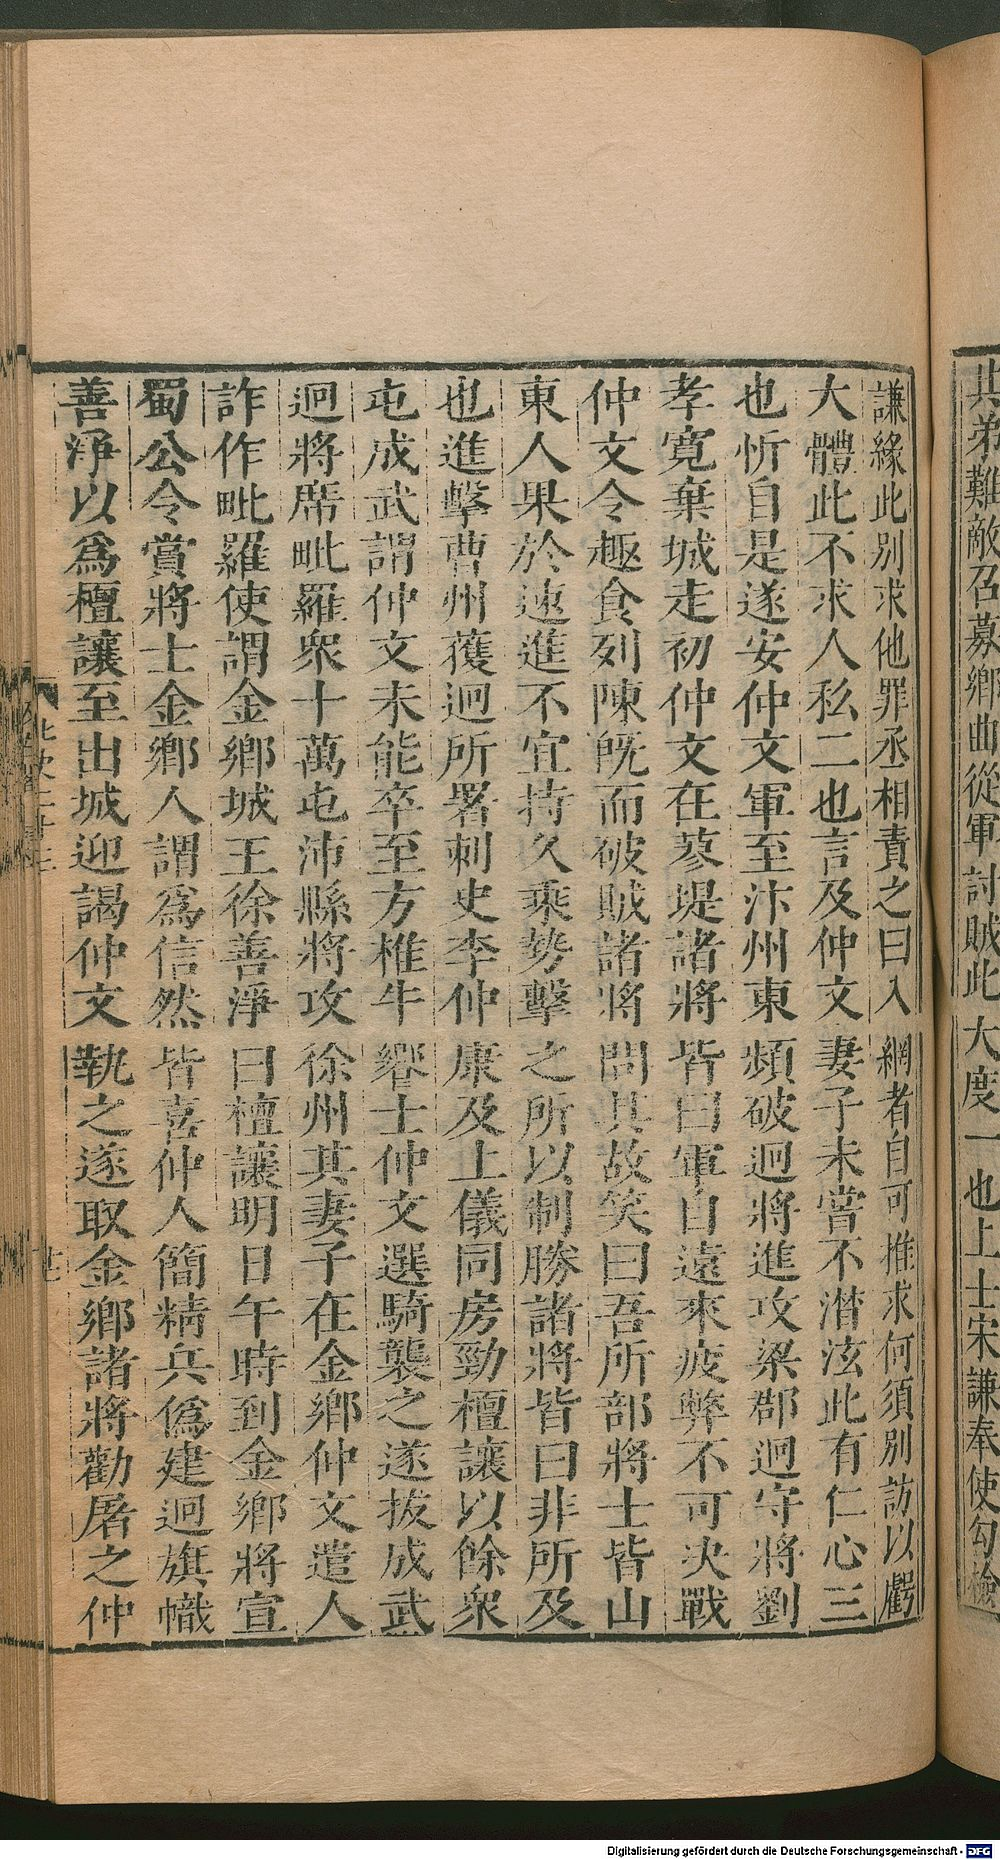 其弟難敵召募鄉曲從軍討賊此大度一也上士宋謙奉使勾檢
謙緣此別求他罪丞相責之曰入網者自可推求何須別訪以虧
大體此不求人私二也言及仲文妻子未嘗不潸泫此有仁心三
也忻自是遂安仲文軍至汴州東頻破迥將進攻梁郡迥守將劉
孝寬棄城走初仲文在蓼堤諸將皆曰軍自遠來疲弊不可決戰
仲文令趣食列陳旣而破賊諸將問其故笑曰吾所部將士皆山
東人果於速進不宜持久乗勢擊之所以制勝諸將皆曰非所及
也進擊曹州獲迥所署刺史李仲康及上儀同房勁檀讓以餘衆
屯成武謂仲文未能卒至方椎牛饗士仲文選騎襲之遂拔成武
迥將席毗羅衆十萬屯沛縣將攻徐州其妻子在金鄉仲文遣人
詐作毗羅使謂金鄉城王徐善淨曰檀讓明日午時到金鄉將宣
蜀公令賞將士金鄉人謂爲信然皆喜仲人簡精兵僞建迥旗幟
善淨以爲檀讓至出城迎謁仲文執之遂取金鄉諸將勸屠之仲
Digitalisierung gefördert durch die Deutsche Forschungsgemeinschaft - DFG